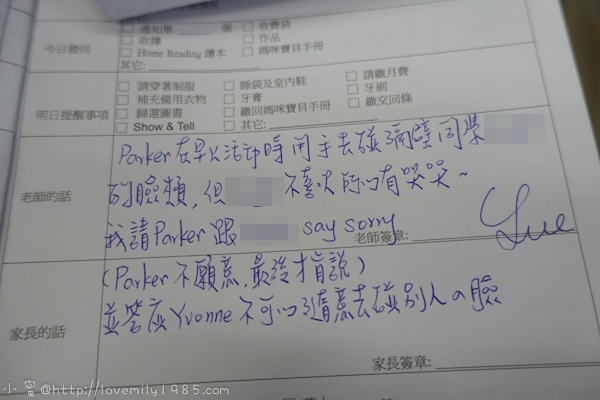 今日發回
□ 通知單 ____ 張 □ 收費袋
□ 收據 □ 作品
□ Home Reading 讀本 □ 媽咪寶貝手冊
其它:
明日提醒事項
□ 請穿著制服 □ 睡袋及室內鞋 □ 請繳月費
□ 補充備用衣物 □ 牙膏 □ 牙刷
□ 歸還圖書 □ 繳回媽咪寶貝手冊 □ 繳交回條
□ Show & Tell □ 其它:
老師的話
Parker在早上活動時用手去碰隔壁同學
的臉頰,但 不喜歡所以有哭哭~
我請Parker跟 say sorry
老師簽章:
(Parker不願意,最後才肯說)
家長的話
並答應Yvonne不可以隨意去碰別人的臉
家長簽章:
小蜜@http://lovemily1985.com